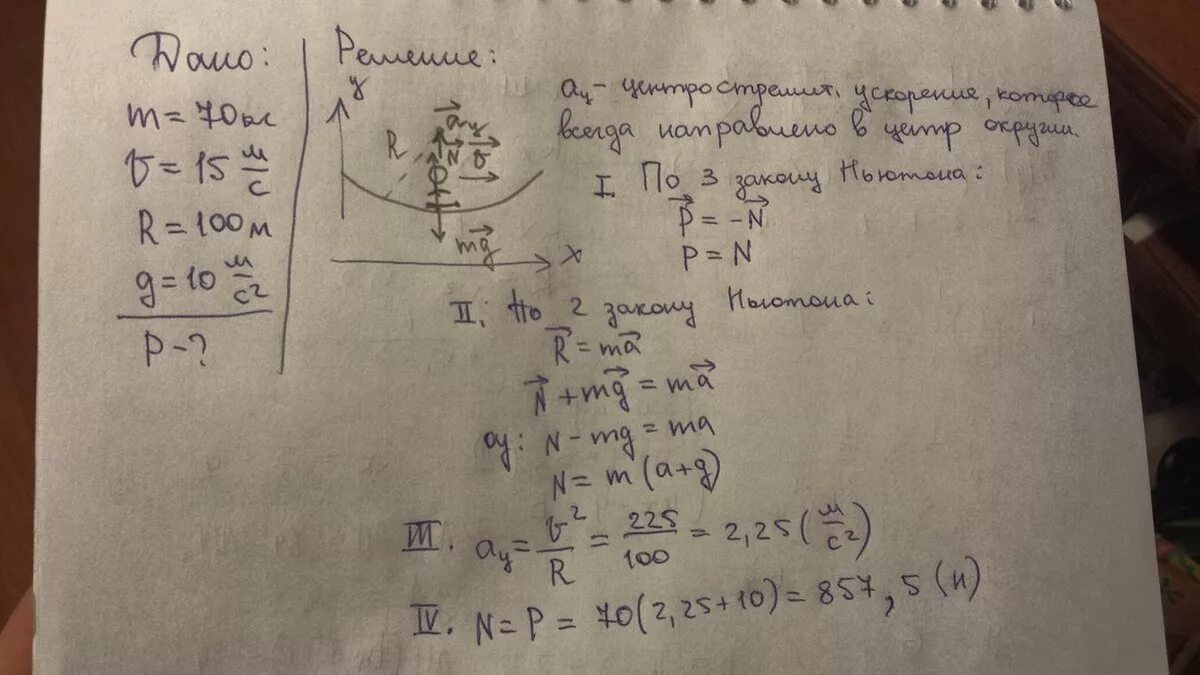 Дано:
m = 70 кг
v = 15 м/с
R = 100 м
g = 10 м/с²
P - ?
Решение:
y
R
a⃗ц
N⃗
v⃗
mg⃗
x
aц – центростремит. ускорение, которое
всегда направлено в центр окружн.
I. По 3 закону Ньютона:
P⃗ = -N⃗
P = N
II. По 2 закону Ньютона:
R⃗ = ma⃗
N⃗ + mg⃗ = ma⃗
оy: N - mg = ma
N = m (a+g)
III. aц = v²/R = 225/100 = 2,25 (м/с²)
IV. N = P = 70(2,25+10) = 857,5 (Н)